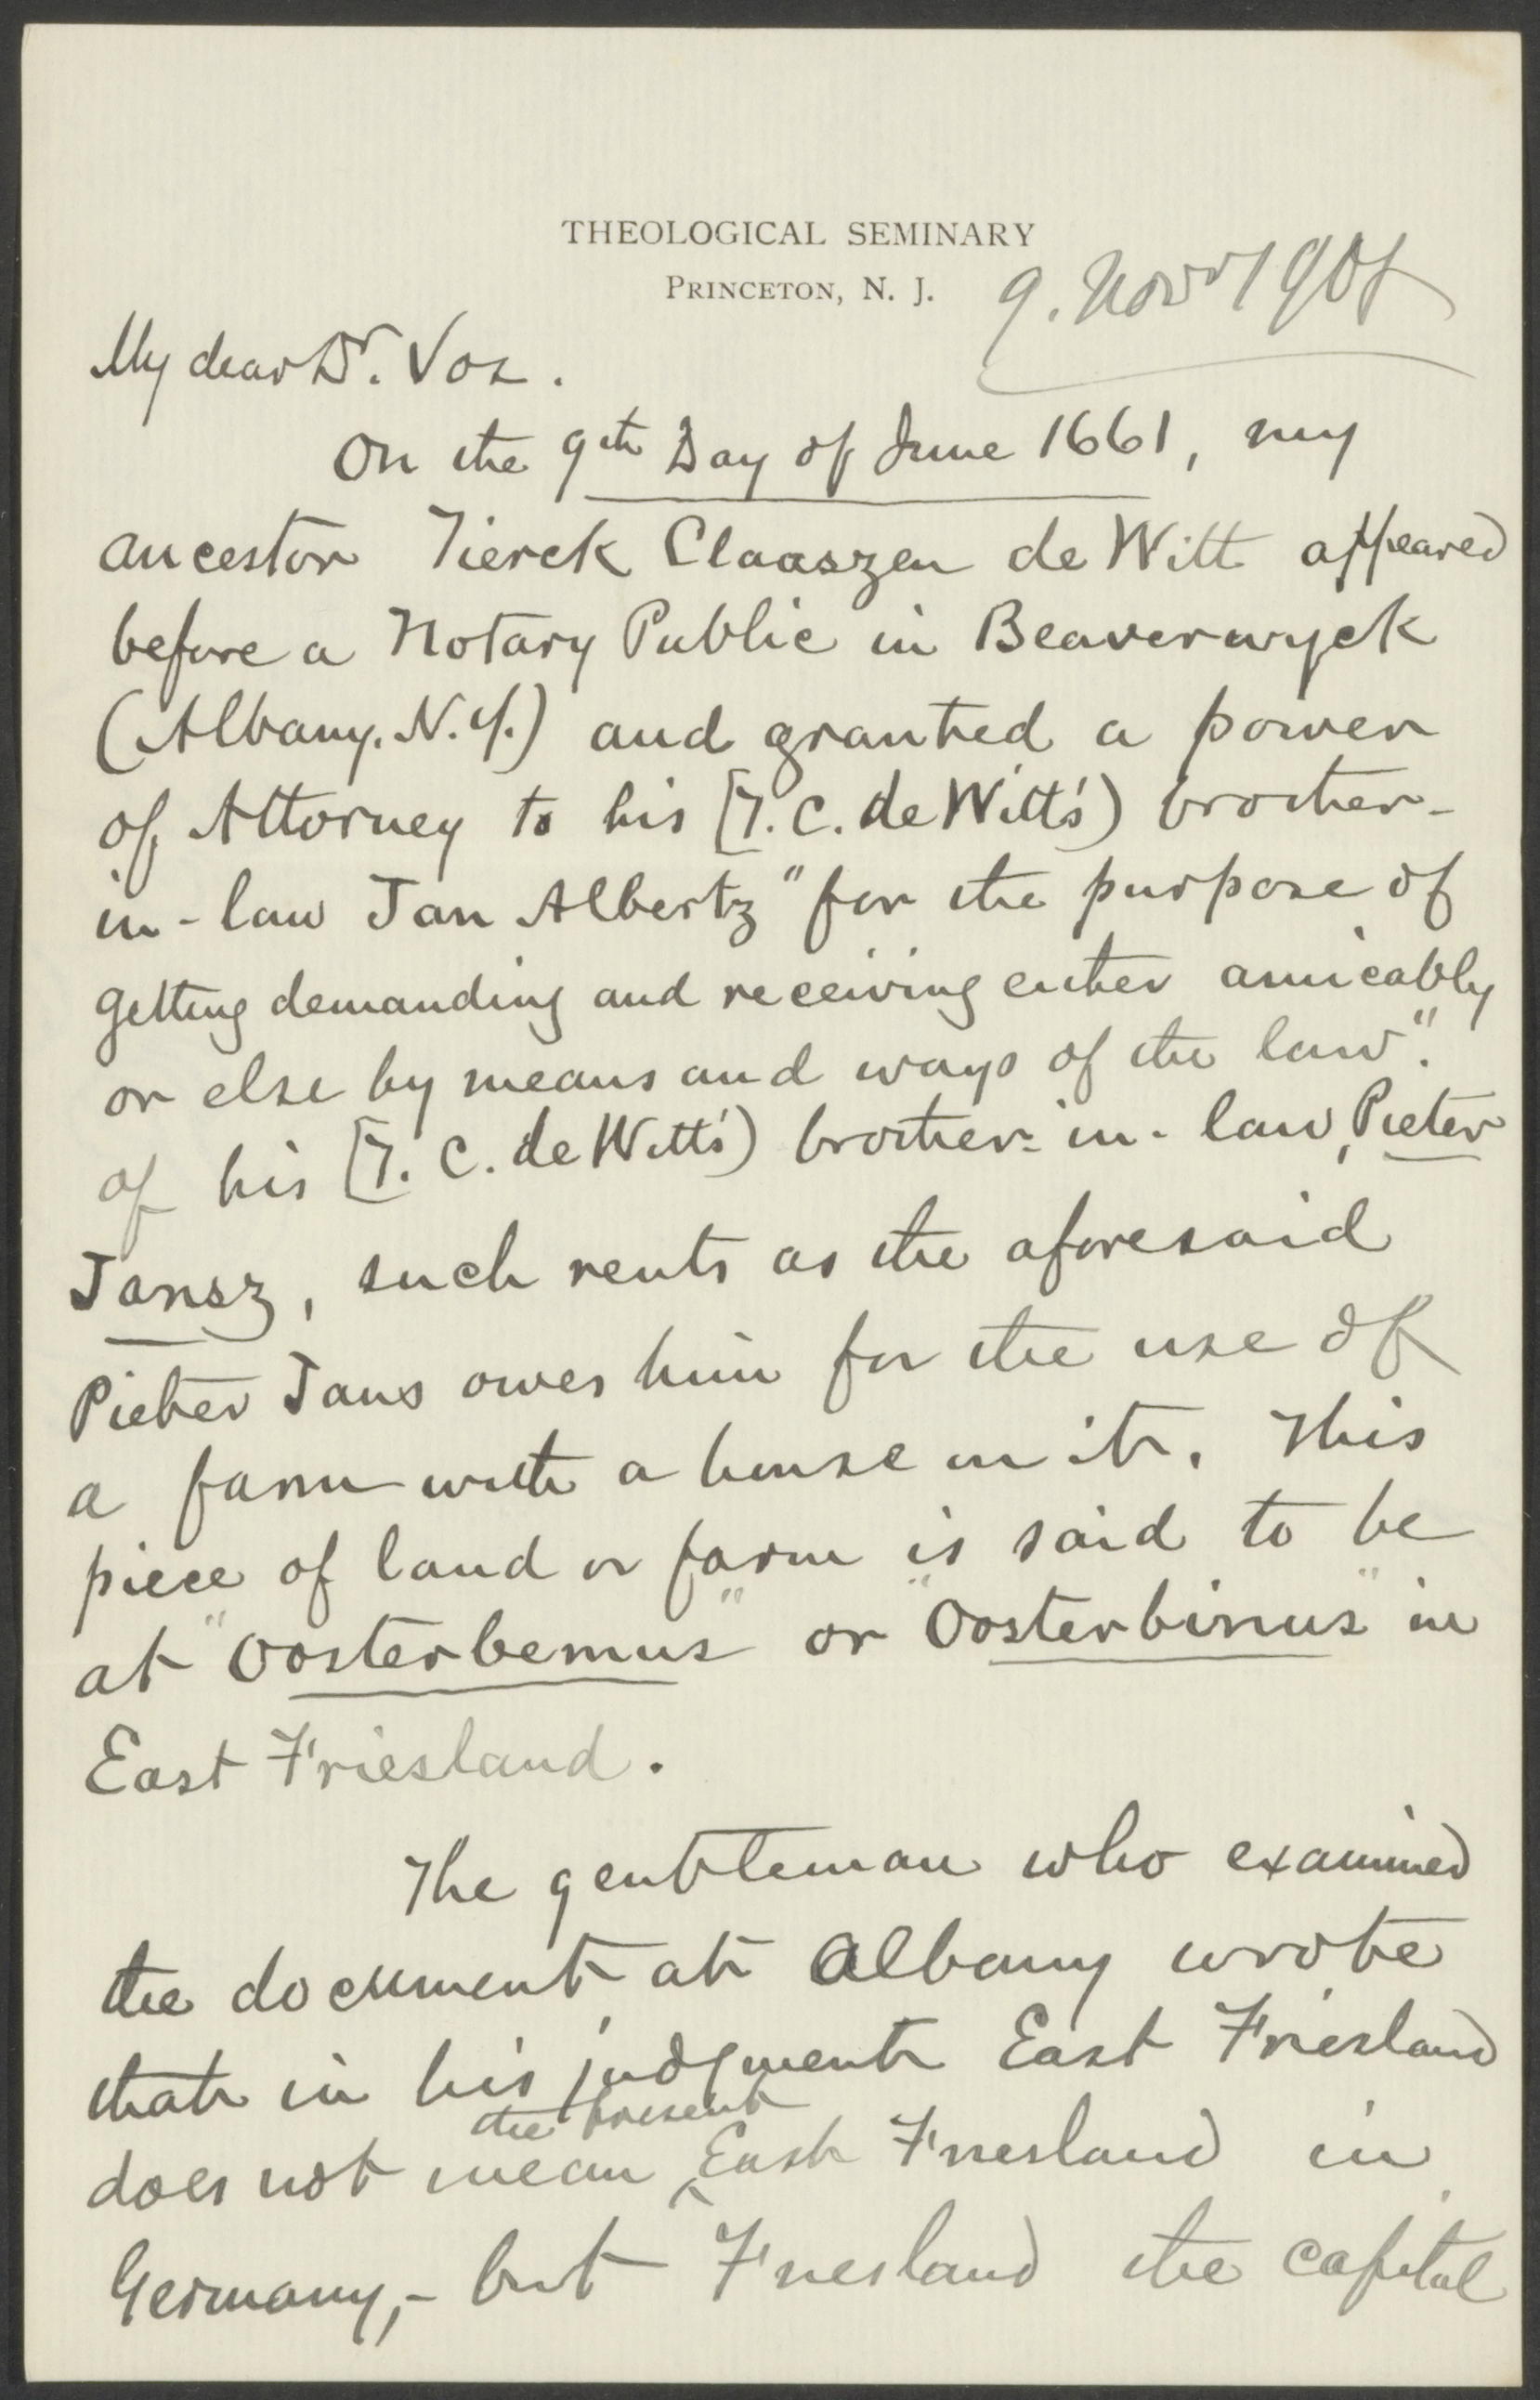 THEOLOGICAL SEMINARY
PRINCETON, N. J.
9. Novr 1908
My dear Dr. Vos.
On the 9th Day of June 1661, my
ancestor Tierck Claaszen de Witt appeared
before a Notary Public in Beaverwyck
(Albany. N.Y.) and granted a power
of Attorney to his [T. C. de Witt's) brother-
in-law Jan Albertz "for the purpose of
getting demanding and receiving either amicably
or else by means and ways of the law".
of his [T. C. de Witt's) brother-in-law, Pieter
Jansz, such rents as the aforesaid
Pieter Jans owes him for the use of
a farm with a house on it. This
piece of land or farm is said to be
at "Oosterbemus" or "Oosterbinus" in
East Friesland.
The gentleman who examined
the document at Albany wrote
that in his judgment East Friesland
the present
does not mean ‸ East Friesland in
Germany,- but Friesland the capital